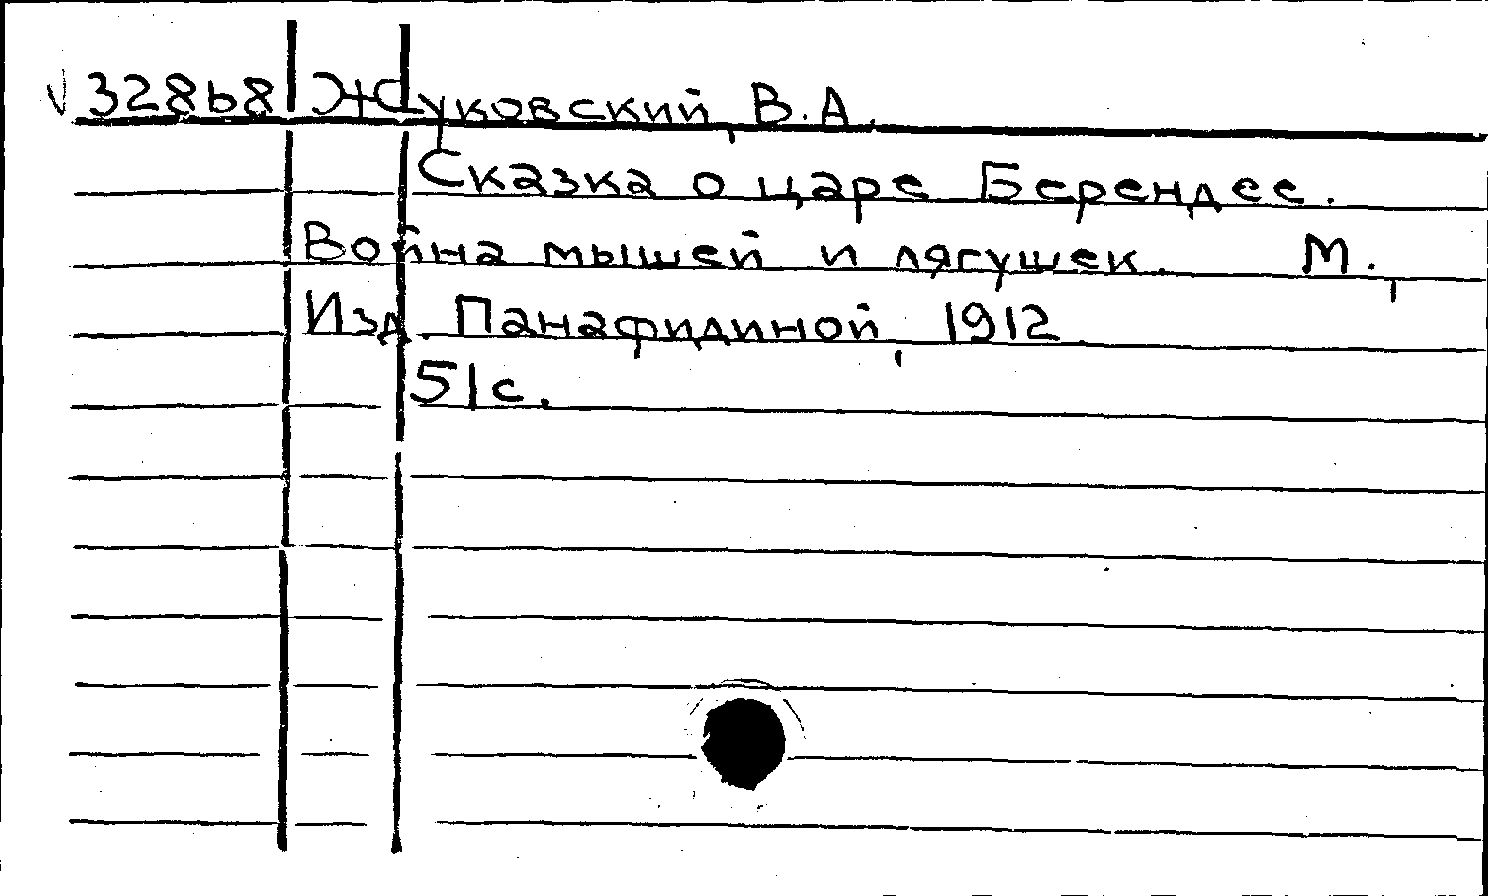 32868 Жуковский, В.А.
Сказка о царе Берендее.
Война мышей и лягушек. М.,
Изд. Панафидиной, 1912.
51с.